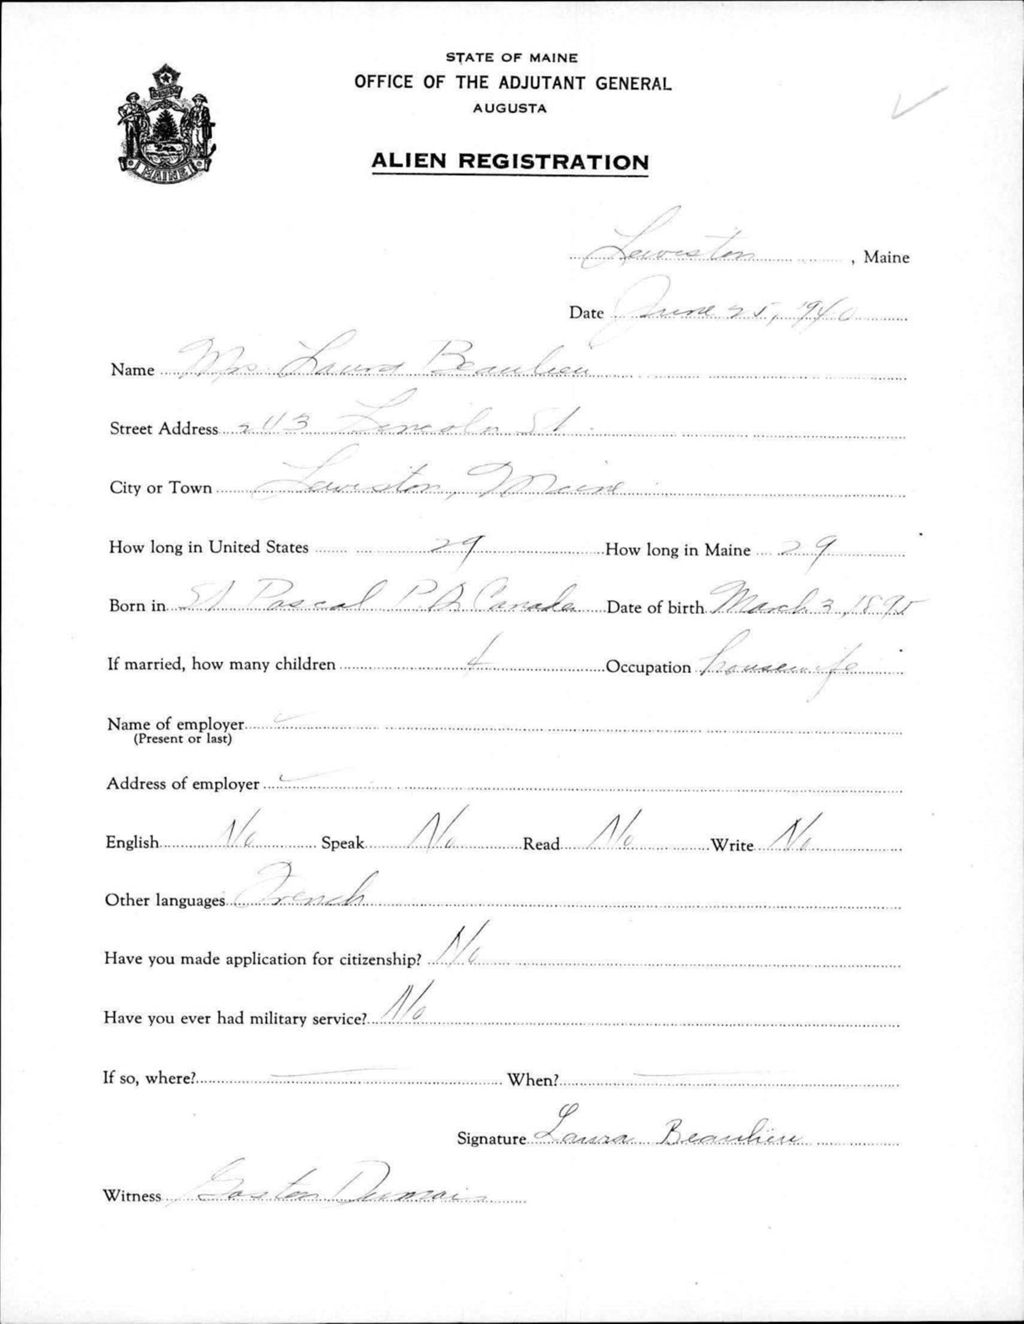 STATE OF MAINE
OFFICE OF THE ADJUTANT GENERAL
AUGUSTA
ALIEN REGISTRATION
MAINE
Lewiston, Maine
Date June 25, 1940
Name Mrs Laura Beaulieu
Street Address 243 Lincoln St.
City or Town Lewiston, Maine
How long in United States 29 How long in Maine 29
Born in St Pascal P.Q. Canada Date of birth March 3, 1895
If married, how many children 4 Occupation housewife
Name of employer
(Present or last)
Address of employer
English No Speak No Read No Write No
Other languages French
Have you made application for citizenship? No
Have you ever had military service? No
If so, where? When?
Signature Laura Beaulieu
Witness Gaston Dumais